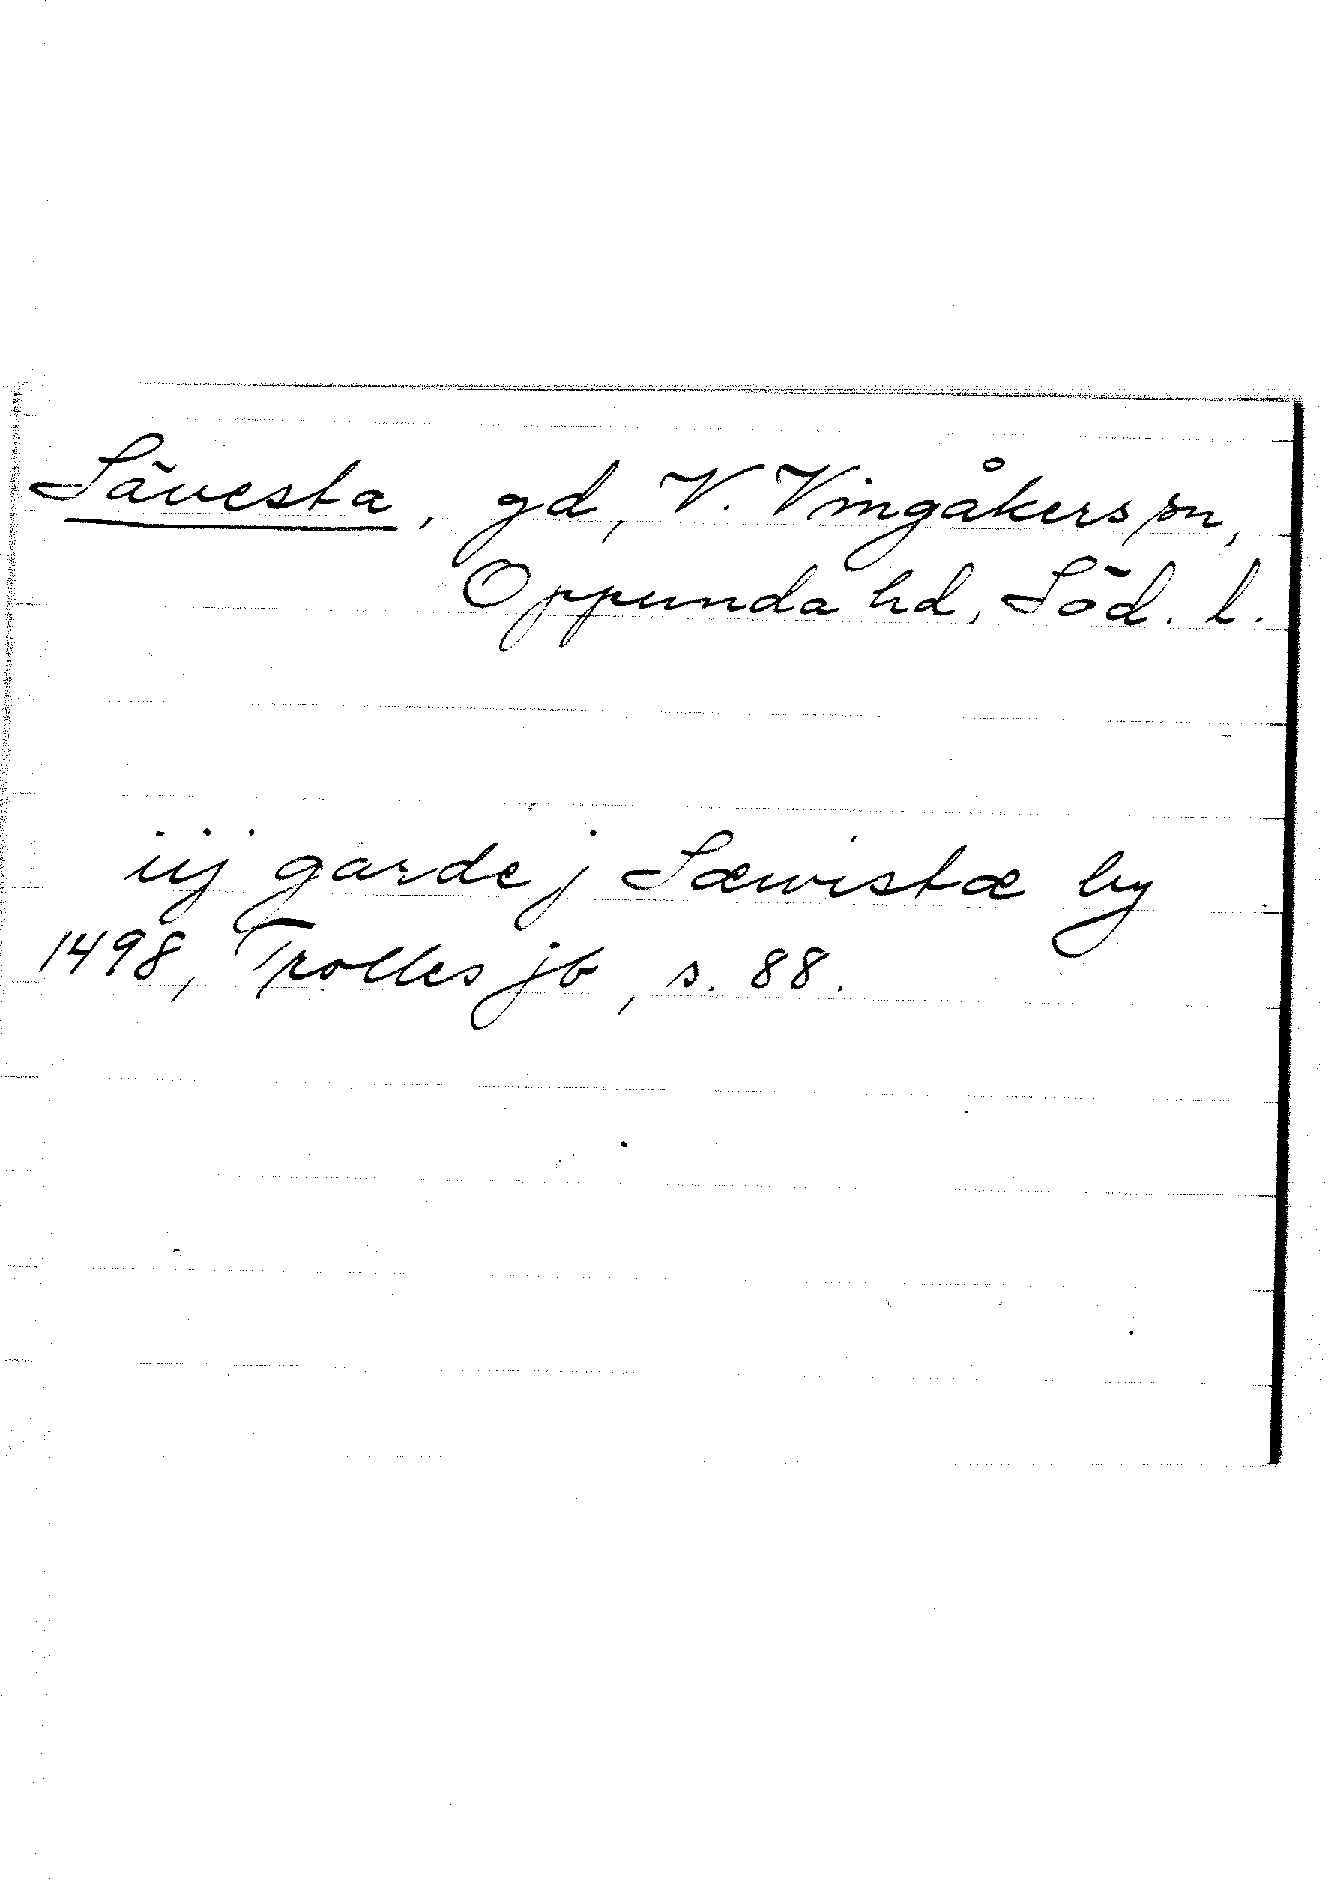 Sävesta, gd, V. Vingåkers sn,
Oppunda hd, Söd. l.
iij garde j Sæwistæ by
1498, Trolles jb, s. 88.